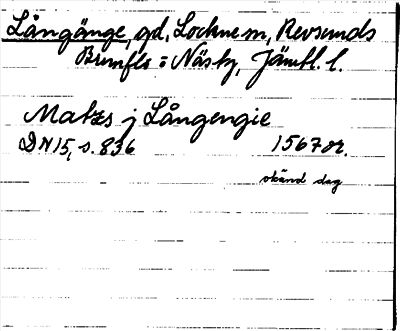 Långänge, gd, Lockne sn, Revsunds
Brunflo o Näs tg, Jämtl. l.
Matzs j Långengie
DN 15, s. 836 1567 or.
okänd dag